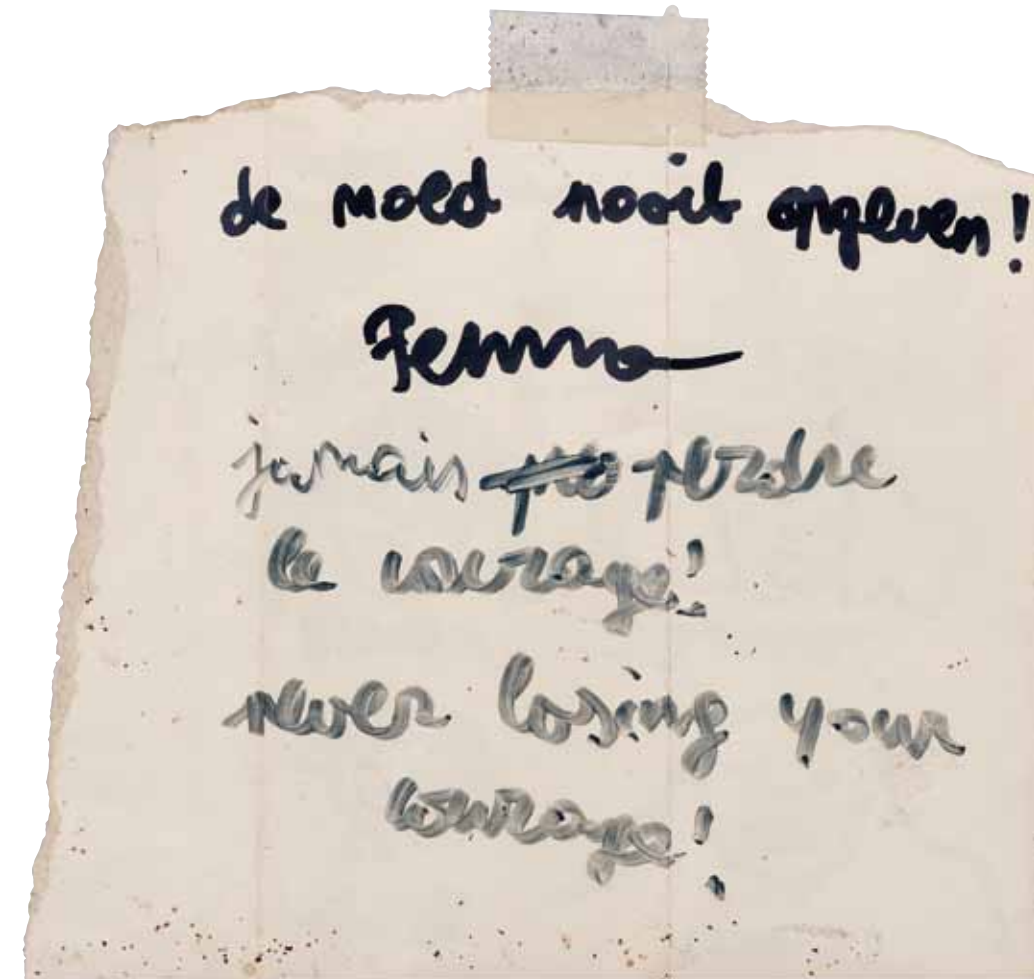 de moed nooit opgeven!
Femma
jamais perdre
le courage!
never losing your
courage!